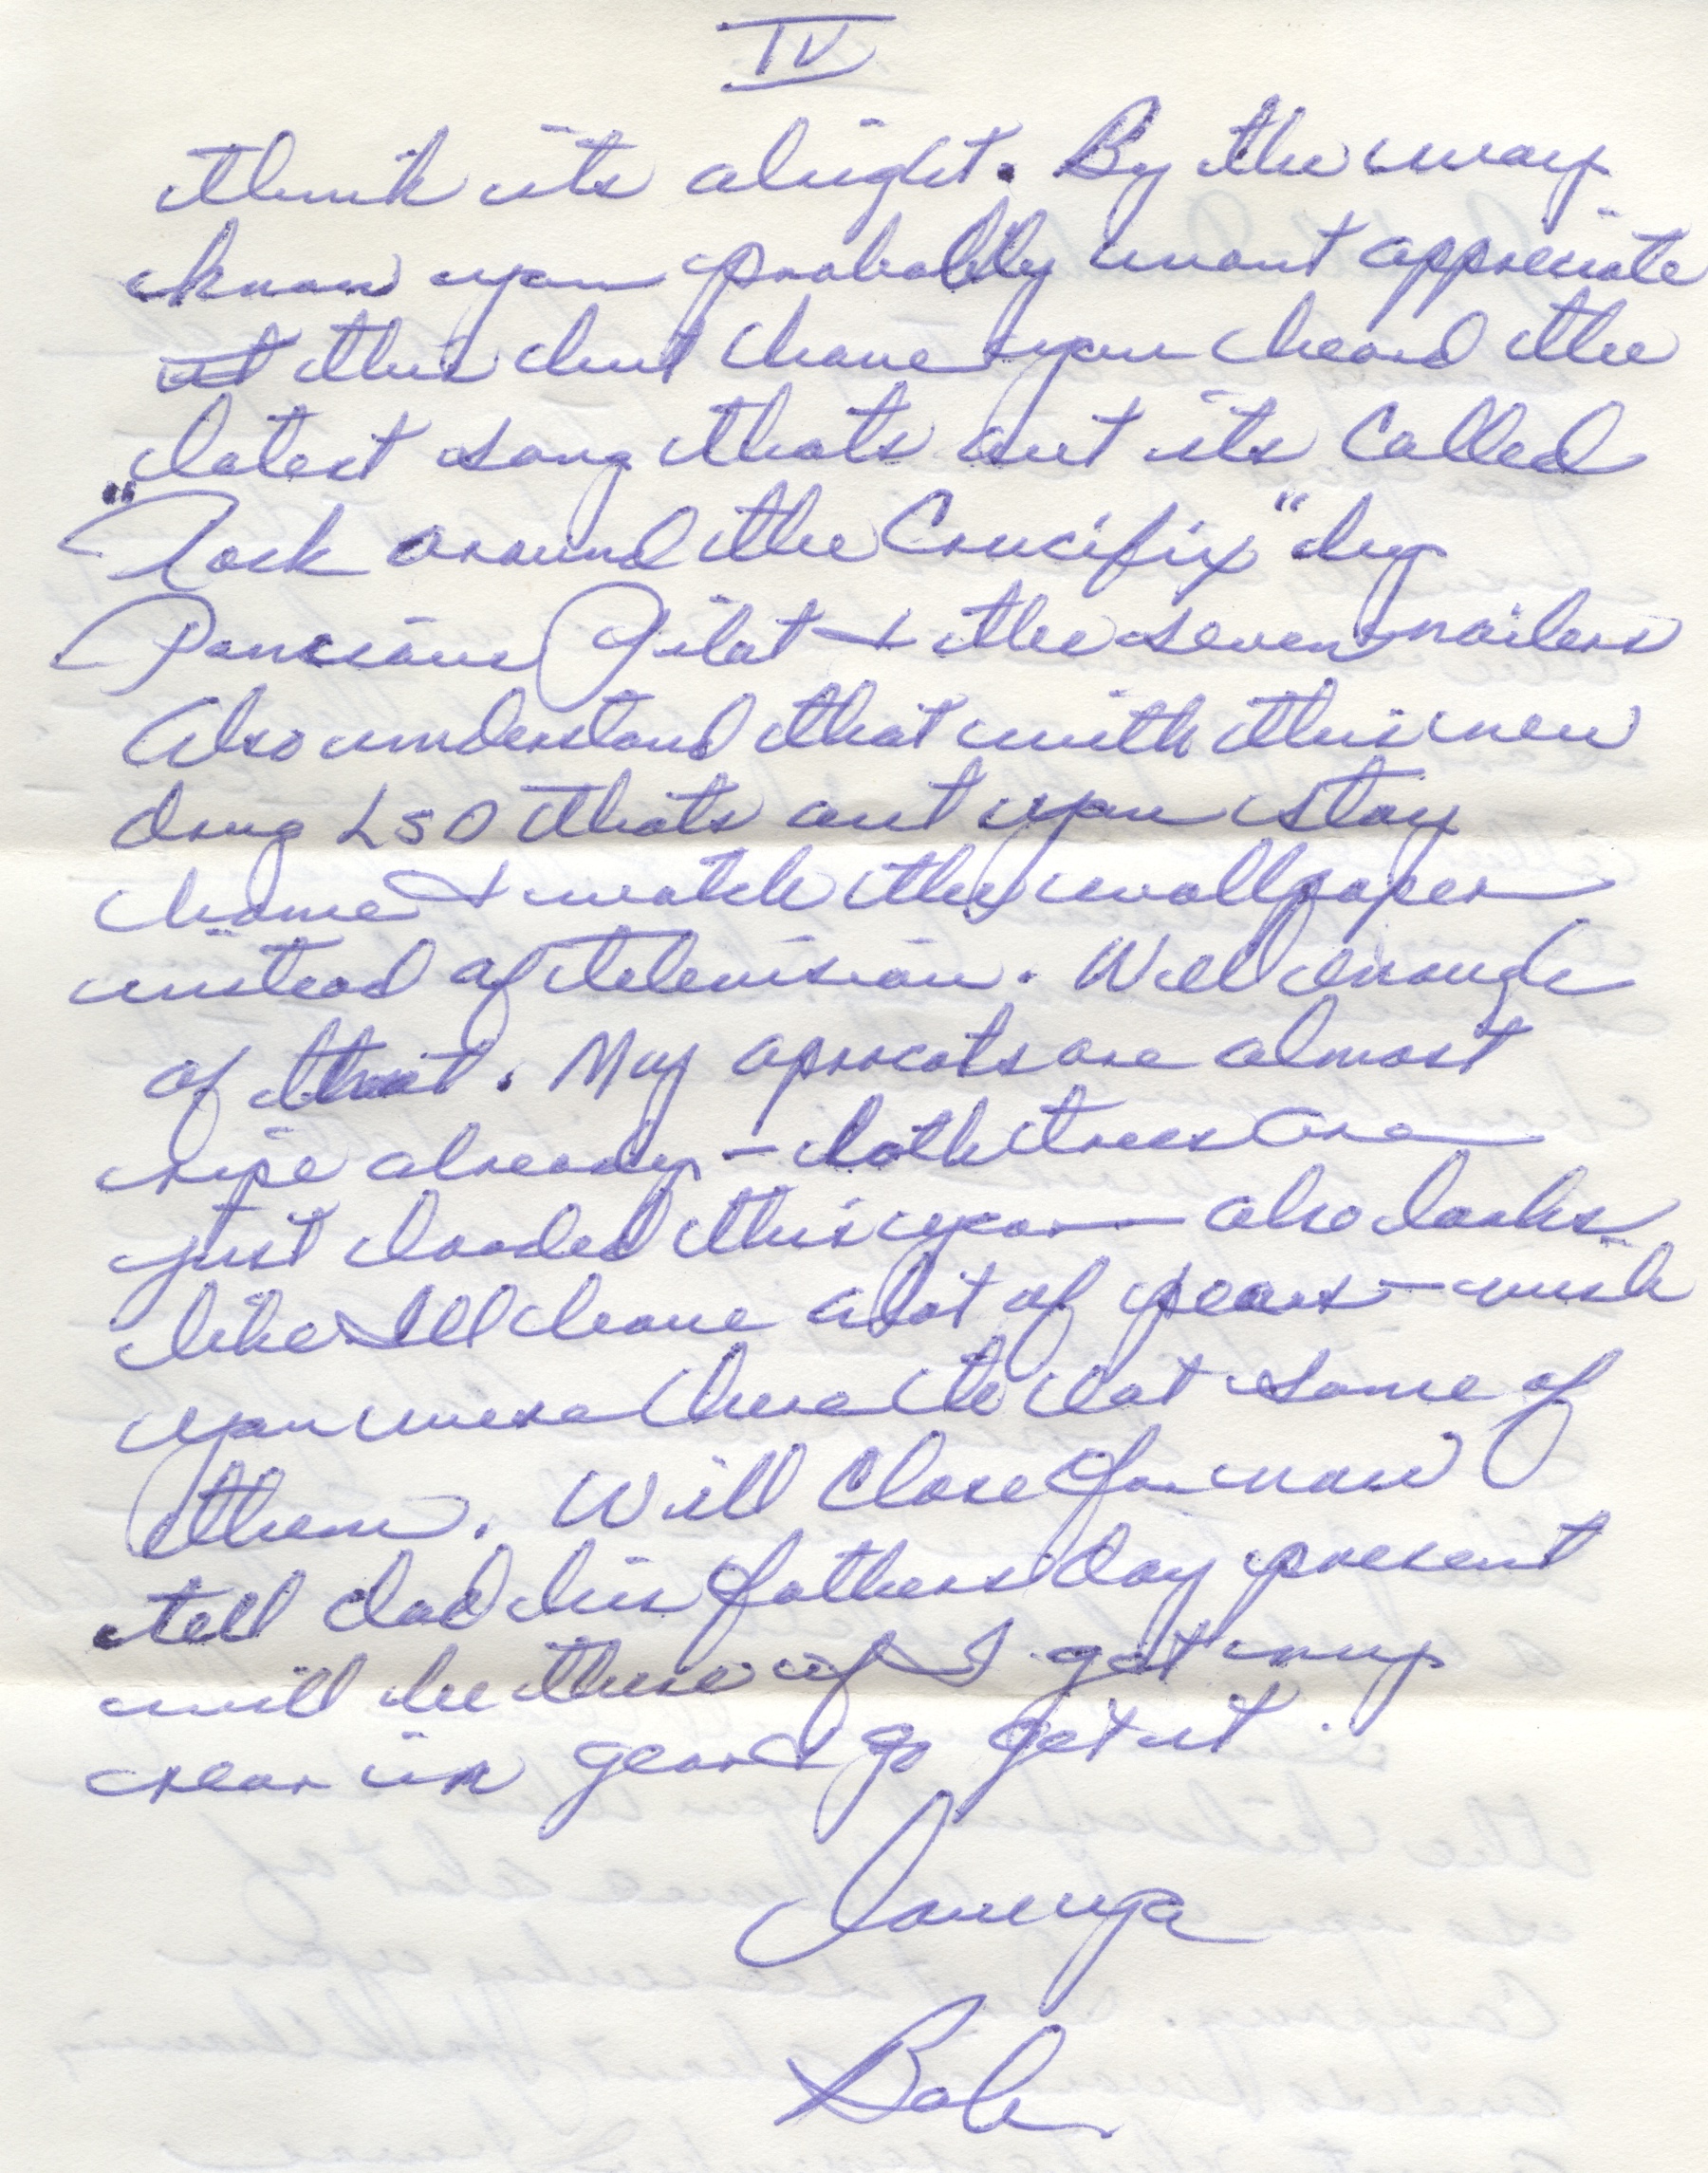 IV
think its alright. By the way
know you probably wont appreciate
it this but have you heard the
latest song thats out its called
"Rock around the Crucifix" by
Poncious Pilat & the seven nailers
Also understand that with this new
drug LSD thats out you stay
home & watch the wallpaper
instead of television. Well enough
of that. My aprocots are almost
ripe already - both trees are
just loaded this year - also looks
like Ill have alot of pears - wish
you were here to eat some of
them. Will close for now
tell dad his fathers day present
will be there if I get my
rear in gear & go get it.
Love ya
Bob